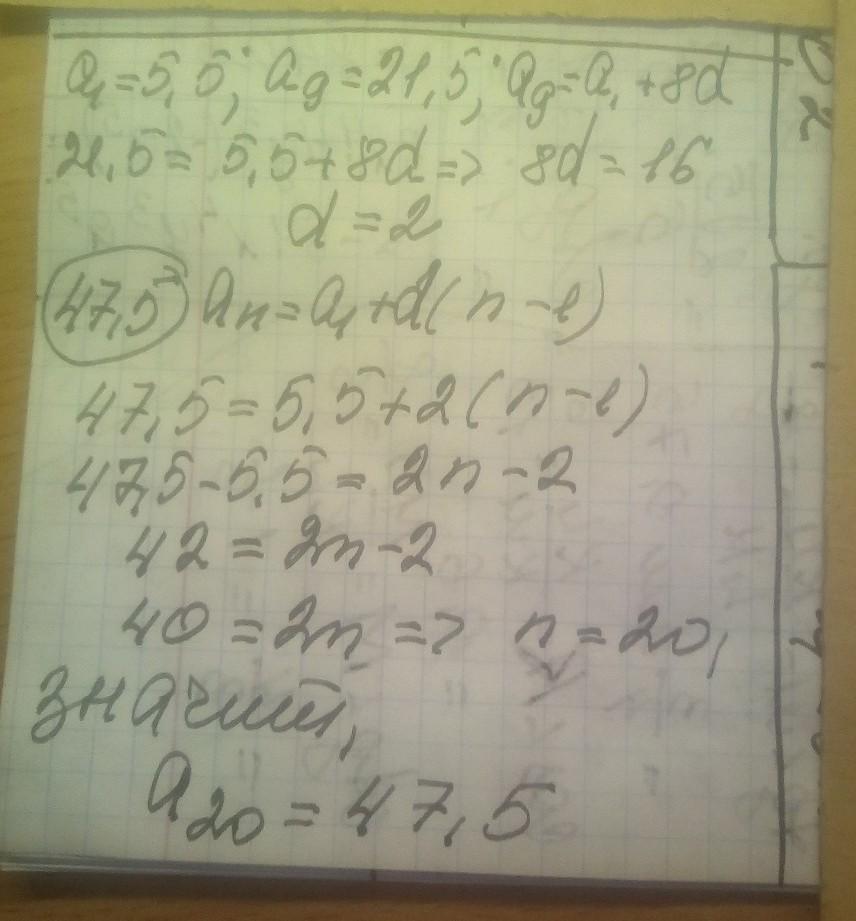 a₁=5,5; a₉=21,5; a₉=a₁+8d
21,5=5,5+8d=> 8d=16
d=2
47,5 aₙ=a₁+d(n-1)
47,5=5,5+2(n-1)
47,5-5,5=2n-2
42=2n-2
40=2n=> n=20,
значит,
a₂₀=47,5